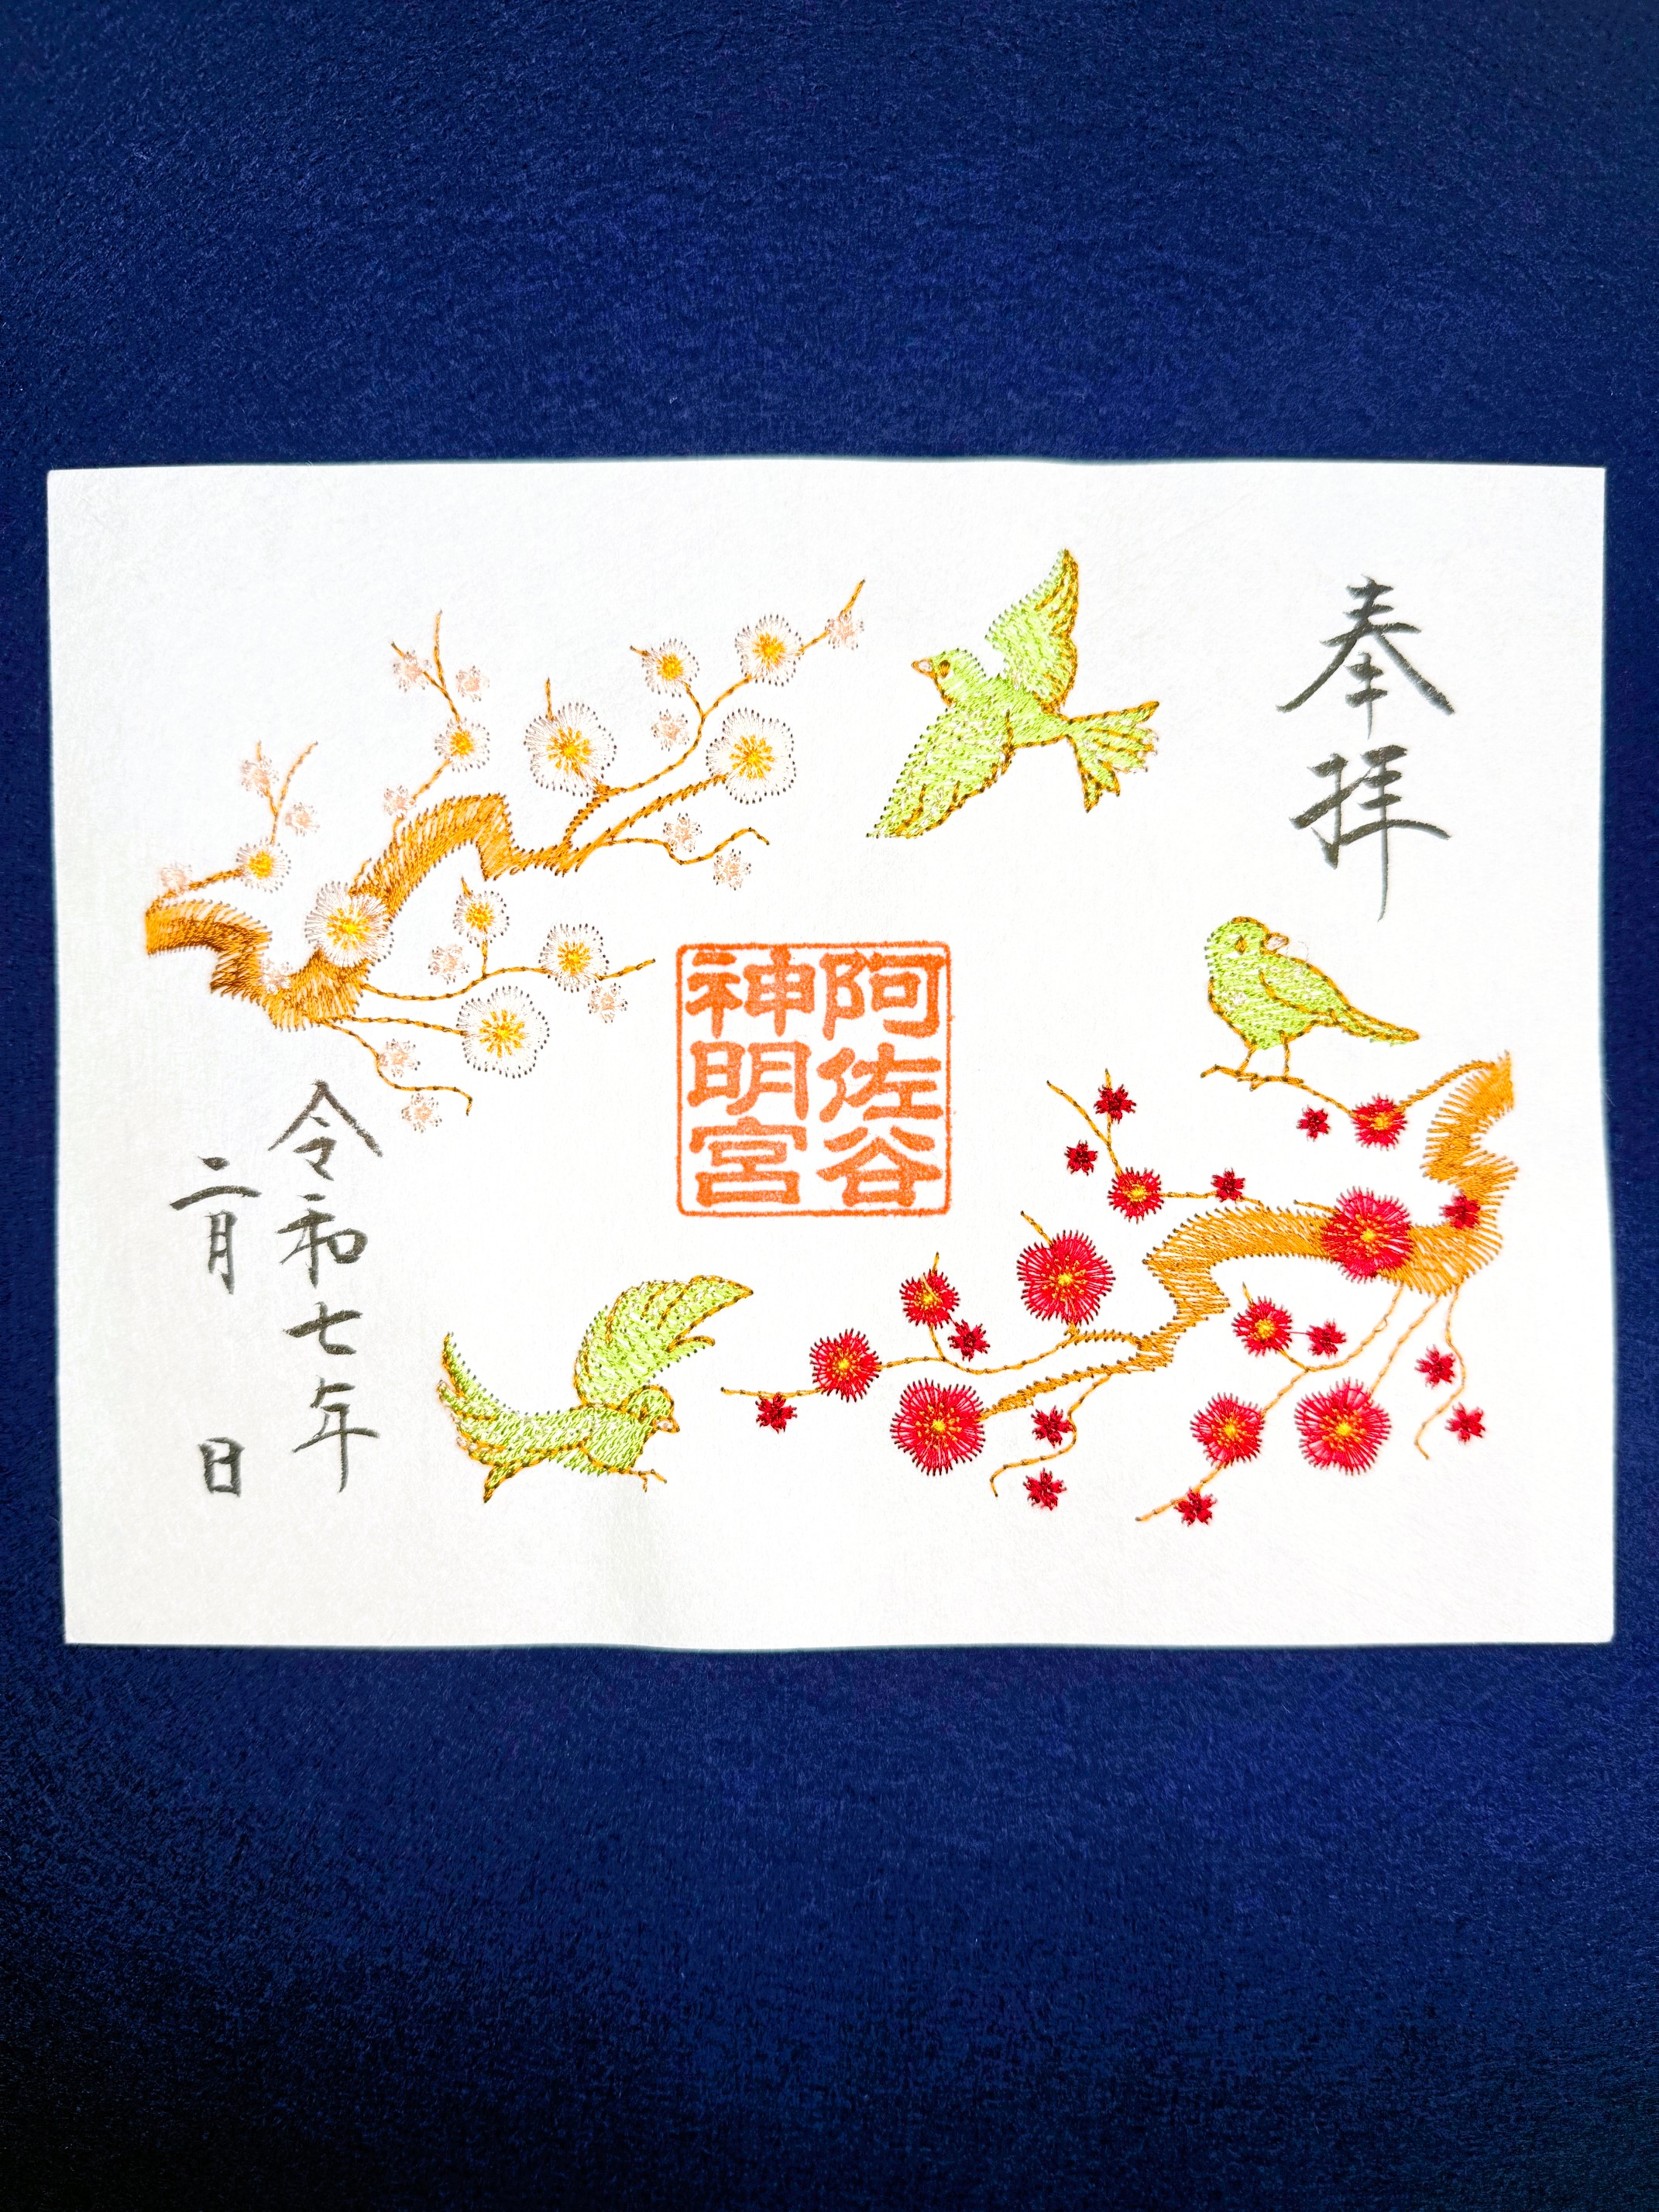 奉拝
阿佐谷
神明宮
令和七年
二月 日